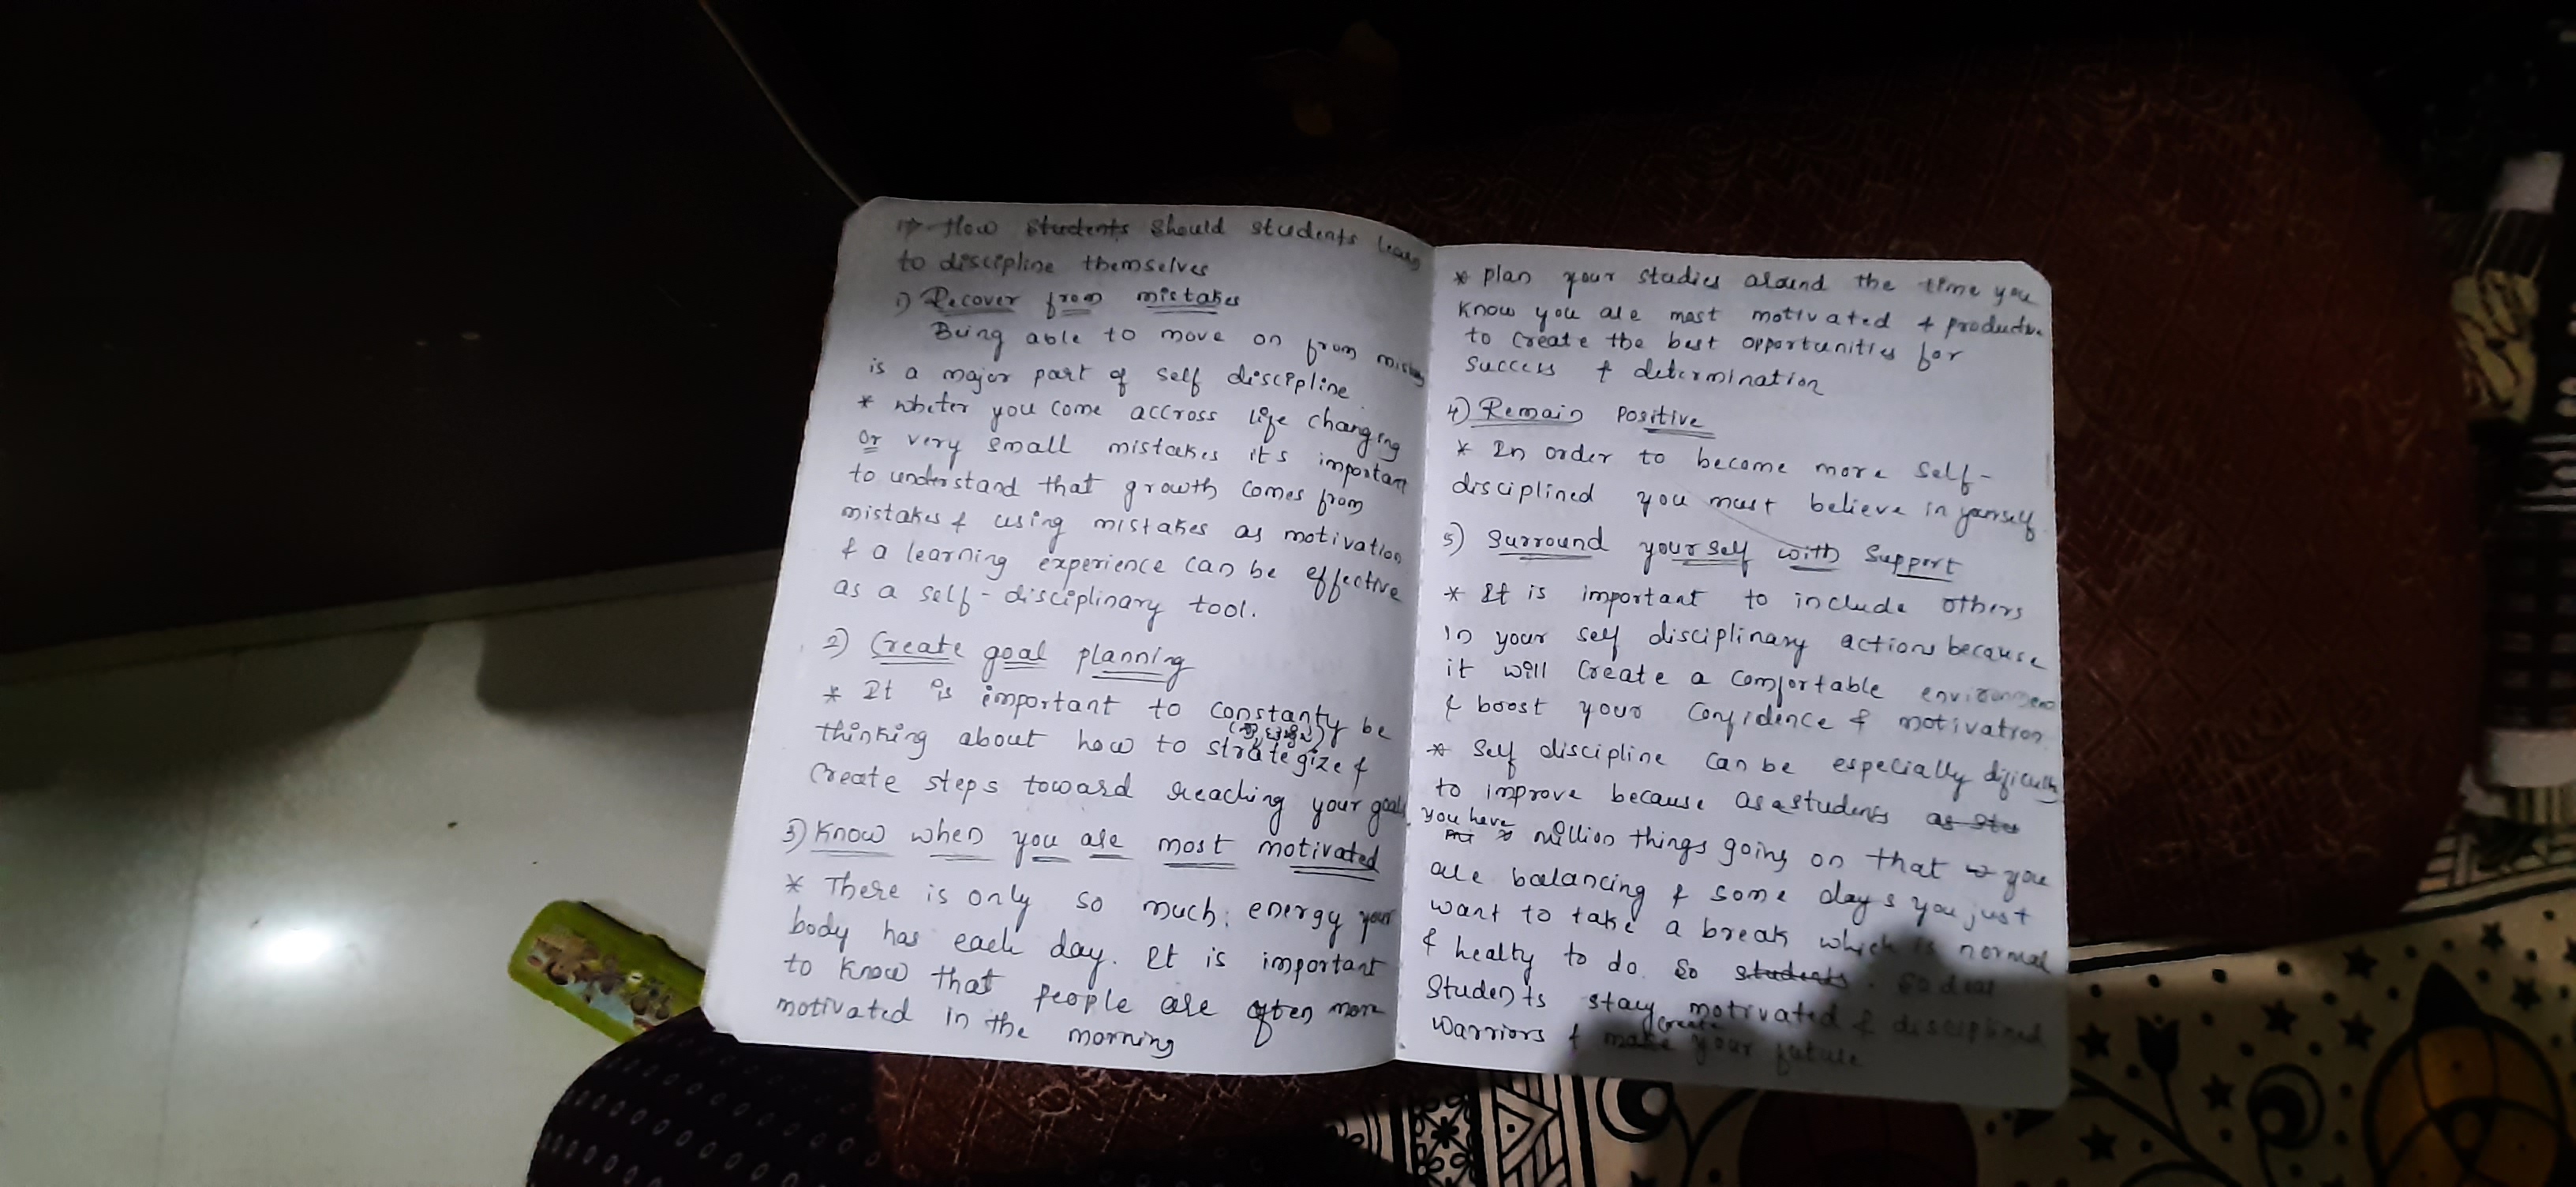 How students should students learn
to discipline themselves
1) Recover from mistakes
Being able to move on from
is a major part of self discipline
* wheter you come accross life changing
or very small mistakes it's important
to understand that growth comes from
mistakes & using mistakes as motivation
& a learning experience can be effective
as a self-disciplinary tool.
2) Create goal planning
* It is important to constanty be
thinking about how to strategize &
Create steps toward reaching your goals.
3) Know when you are most motivated
* There is only so much energy your
body has each day. It is important
to know that people are often more
motivated in the morning
* plan your studies around the time you
know you are most motivated & productive
to create the best opportunities for
success & determination
4) Remain positive
* In order to become more self-
disciplined you must believe in yourself
5) Surround yourself with Support
* It is important to include others
in your self disciplinary actions because
it will create a comfortable environment
& boost your confidence & motivation
* Self discipline can be especially
to improve because as a students as stu
you have
million things going on that you
are balancing & some days you just
want to take a break which is normal
& healty to do. So students. So dear
Students stay motivated & disciplined
create
warriors & make your future